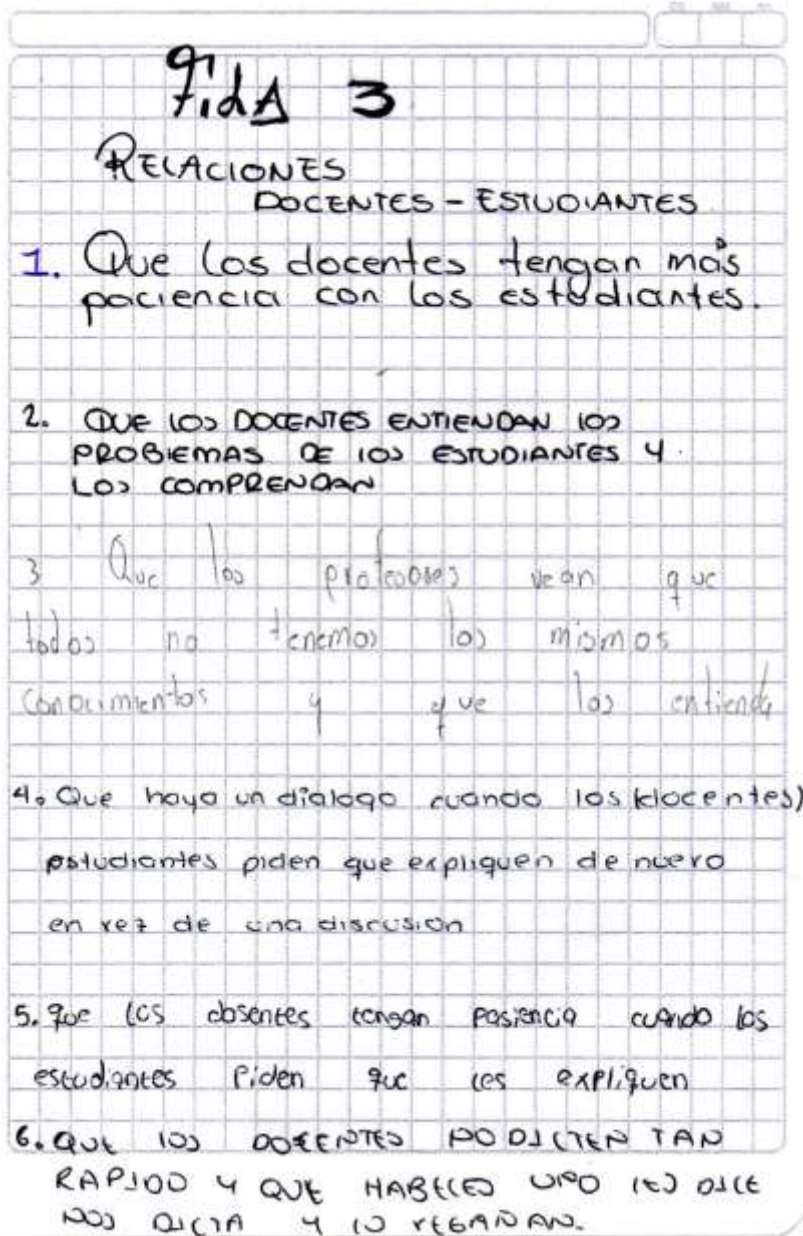 FidA 3
RELACIONES
DOCENTES - ESTUDIANTES
1. Que los docentes tengan más
paciencia con los estudiantes.
2. QUE LOS DOCENTES ENTIENDAN LOS
PROBLEMAS DE LOS ESTUDIANTES Y
LOS COMPRENDAN
3 Que los profesores vean que
todos no tenemos los mismos
conocimientos y que los entienda
4. Que haya un dialogo cuando los (docentes)
estudiantes piden que expliquen de nuevo
en vez de una discusión
5. que los dosentes tengan pasiencia cuando los
estudiantes piden que les expliquen
6. QUE LOS DOCENTES NO DICTEN TAN
RAPIDO Y QUE HABECES UNO LES DICE
NOS DICTA Y LO REGAÑAN.